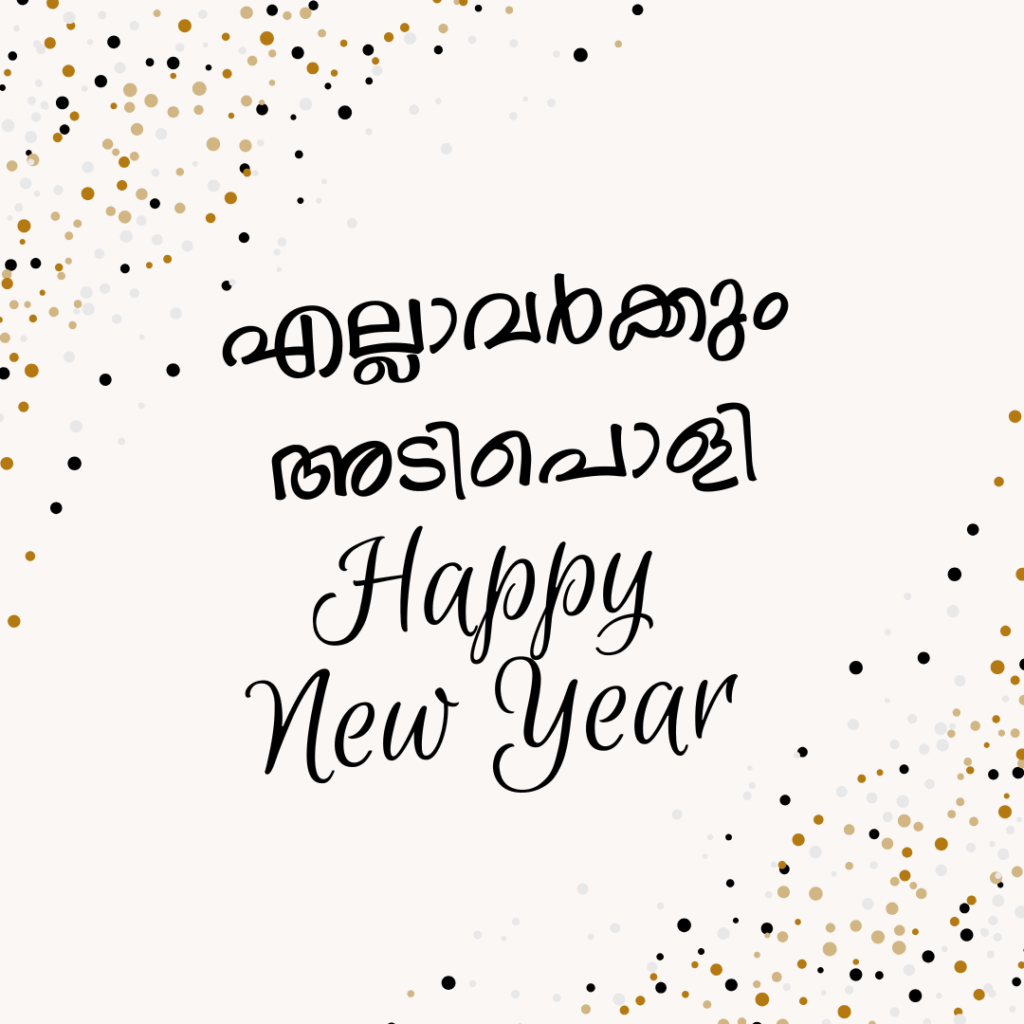 എല്ലാവർക്കും
അടിപൊളി
Happy
New Year